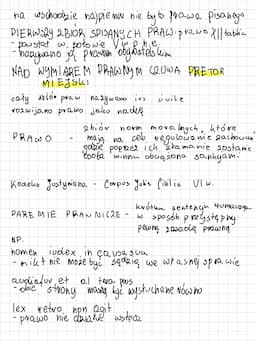 na wschodzie najpierw nie było prawa pisanego
PIERWSZY ZBIÓR SPISANYCH PRAW: prawo XII tablic
- powstał w połowie V w p.n.e.
- nazywano ją prawem obywatelskim
NAD WYMIAREM PRAWNYM CZUWA PRETOR
MIEJSKI
cały zbiór praw nazywano ius civile
rozwijano prawo jako naukę
PRAWO - zbiór norm moralnych, które
mają na celu regulowanie zachowań
gdzie poprzez ich złamanie zostanie
osoba winna obciążona sankcjami.
Kodeks Justyniana - Corpus Juris Civilis VI w.
PAREMIE PRAWNICZE - krótkie sentencje
w sposób przystępny
pewną zasadę prawną
NP.
nomen iudex in causa sua
- nikt nie może być sędzią we własnej sprawie
audiatur et al tera pars
- obie strony muszą być wysłuchane równo
lex retro non agit
- prawo nie działa wstecz